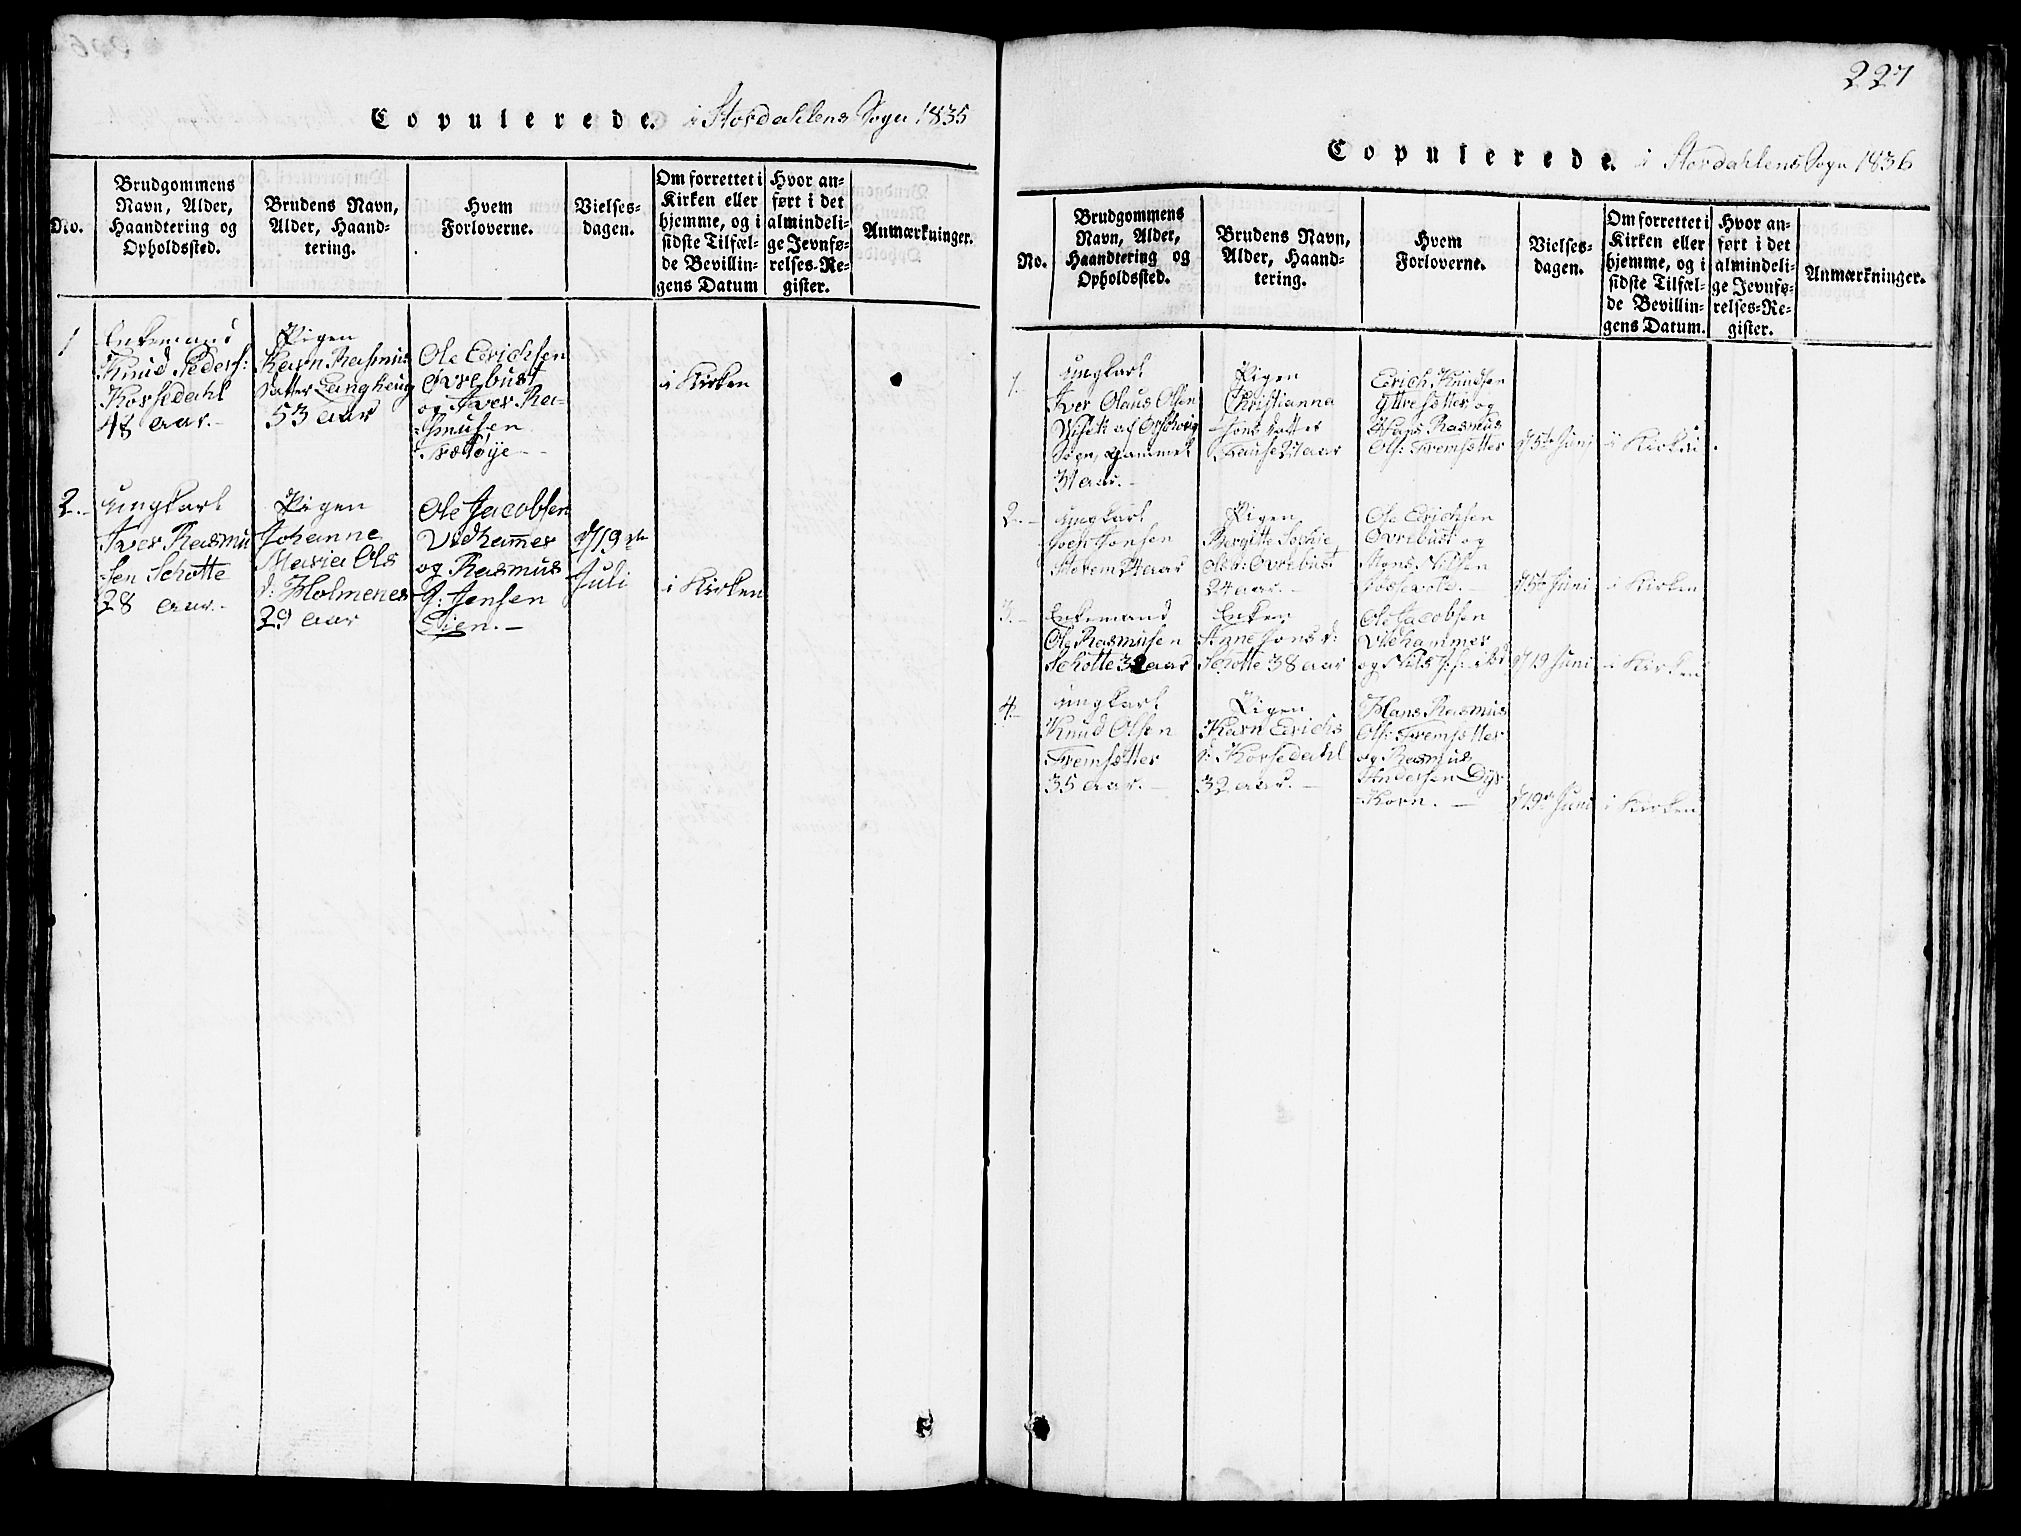 Copulerede. i Stordahlens Sogn 1835
No.
Brudgommens
Navn, Alder,
Haandtering og
Opholdssted.
Brudens Navn,
Alder, Haand-
tering.
Hvem
Forloverne.
Vielses-
dagen.
Om forrettet i
Kirken eller
hjemme, og i
sidste Tilfæl-
de Bevillin-
gens Datum
Hvor an-
ført i det
almindeli-
ge Jevnfø-
relses-Re-
gister.
Anmærkninger.
1
Enkemand
Knud Peders:
Korsedahl
48 aar.-
Pigen
Karn Rasmus
datter Langheug
53 aar
Ole Erichsen
Øvrebust
og Iver Ra-
smusen
i Kirken
2.-
ungkarl
Iver Rasmu
sen Schotte
28 aar.-
Pigen
Johanne
Maria Ols
d: Holmenes
29 aar
Ole Jacobsen
Vidhammer
og Rasmus
J: Jensen
Eien.-
d 19de
Juli
i Kirken
227
Copulerede. i Stordahlens Sogn 1836
No.
Brudgommens
Navn, Alder,
Haandtering og
Opholdssted.
Brudens Navn,
Alder, Haand-
tering.
Hvem
Forloverne.
Vielses-
dagen.
Om forrettet i
Kirken eller
hjemme, og i
sidste Tilfæl-
de Bevillin-
gens Datum.
Hvor an-
ført i det
almindeli-
ge Jevnfø-
relses-Re-
gister.
Anmærkninger.
1.
ungkarl
Iver Olaus Olsen
Sogn, gammel
31 aar.-
Pigen
Christianna
Jons datter
27 aar
Erich Knudsen
Yttresætter og
Hans Rasmus
Ols: Fremsætter
d 5te Juni
i Kirken
2.-
ungkarl
Jonsen
24 aar
Pigen
Bergitte Sophie
Ols d: Øvrebust
24 aar.-
Ole Erichsen
Øvrebust og
Nilsen
d 5te Juni
i Kirken
3.-
Enkemand
Ole Rasmusen
Schotte 32 aar
Enken
Anne Jons d:
Schotte 38 aar
Ole Jacobsen
Videhammer
og Nils
d 19 Juni
i Kirken
4.-
ungkarl
Knud Olsen
Fremsætter
35 aar.-
Pigen
Karn Erichs
d: Korsedahl
32 aar.-
Hans Rasmus
Ols: Fremsætter
og Rasmus
Andersen Dyr
Korn.-
d 19de Juni
i Kirken